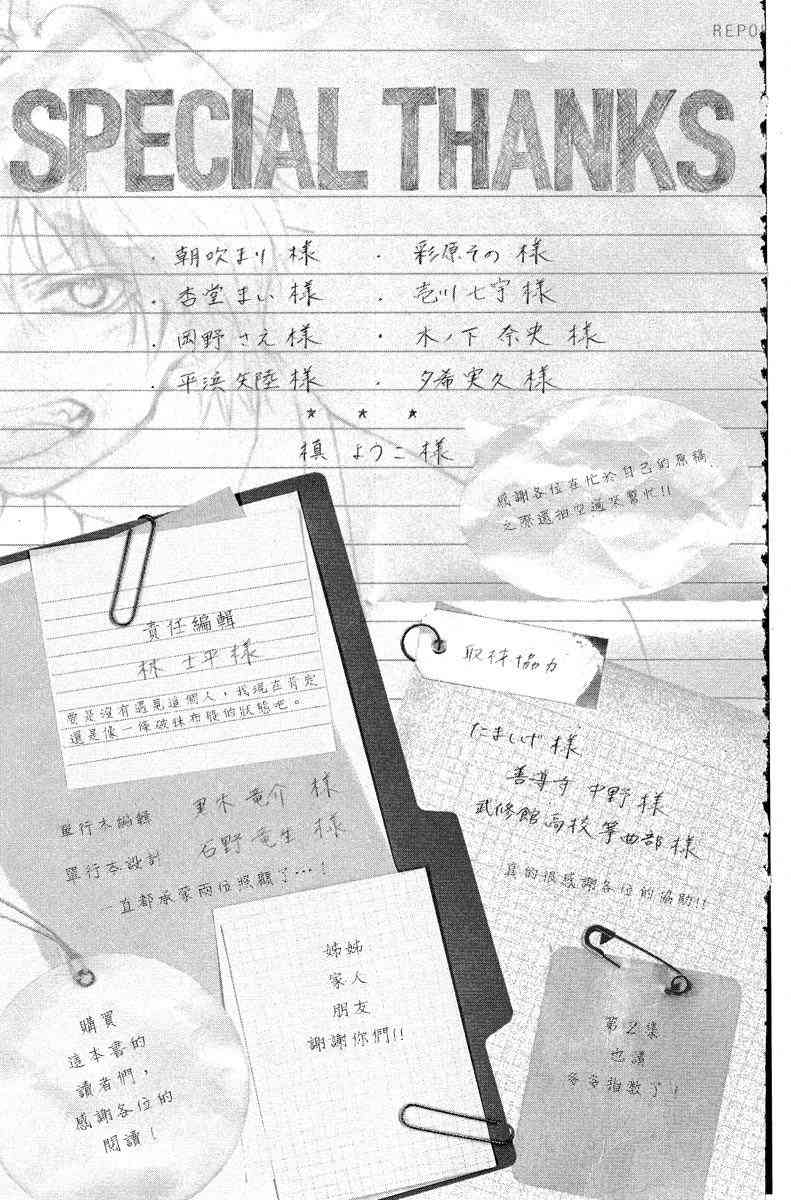 REPO
SPECIAL THANKS
・朝吹まり 様
・彩原その 様
・杏堂まい 様
・壱川七宇 様
・岡野さえ 様
・木ノ下 奈央 様
・平浜矢陸 様
・夕希実久 様
★ ★ ★
槙 ようこ 様
感謝各位在忙於自己的原稿
之際還抽空過來幫忙!!
責任編輯
林 士平 様
要是沒有遇見這個人，我現在肯定
還是像一條破抹布般的狀態吧。
單行本編輯 里木 竜介 様
單行本設計 石野 竜生 様
一直都承蒙兩位照顧了…！
取材協力
たましげ 様
善導寺 中野 様
武修館高校 箏曲部 様
真的很感謝各位的協助!!
姊姊
家人
朋友
謝謝你們!!
購買
這本書的
讀者們，
感謝各位的
閱讀！
第2集
也請
多多指教了！